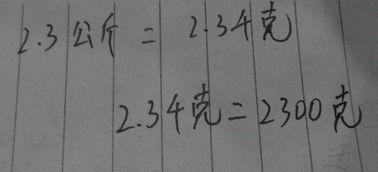 2.3公斤 = 2.34克
2.34克 = 2300克